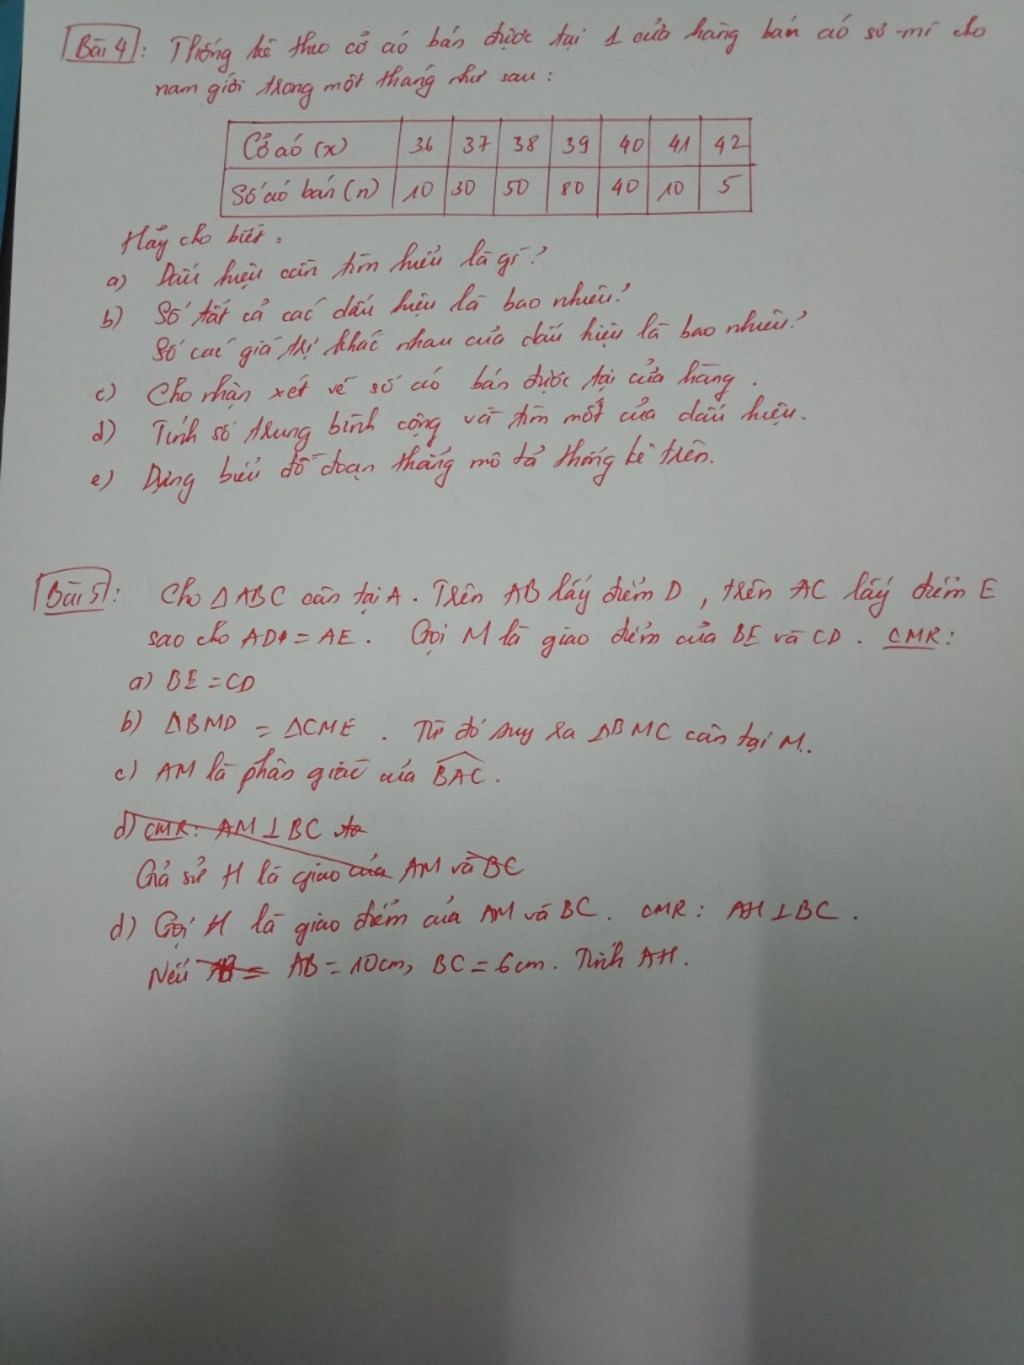 Bài 4: Thống kê theo cỡ áo bán được tại 1 cửa hàng bán áo sơ-mi cho
nam giới trong một tháng như sau:
Cỡ áo (x) 36 37 38 39 40 41 42
Số áo bán (n) 10 30 50 80 40 10 5
Hãy cho biết:
a) Dấu hiệu cần tìm hiểu là gì?
b) Số tất cả các dấu hiệu là bao nhiêu?
Số các giá trị khác nhau của dấu hiệu là bao nhiêu?
c) Cho nhận xét về số áo bán được tại cửa hàng.
d) Tính số trung bình cộng và tìm mốt của dấu hiệu.
e) Dựng biểu đồ đoạn thẳng mô tả thống kê trên.
Bài 5: Cho ΔABC cân tại A. Trên AB lấy điểm D, trên AC lấy điểm E
sao cho AD = AE. Gọi M là giao điểm của BE và CD. CMR:
a) BE = CD
b) ΔBMD = ΔCME. Từ đó suy ra ΔBMC cân tại M.
c) AM là phân giác của BAC.
d) CMR: AM ⊥ BC
Giả sử H là giao của AM và BC
d) Gọi H là giao điểm của AM và BC. CMR: AH ⊥ BC.
Nếu AB = AB = 10cm, BC = 6cm. Tính AH.